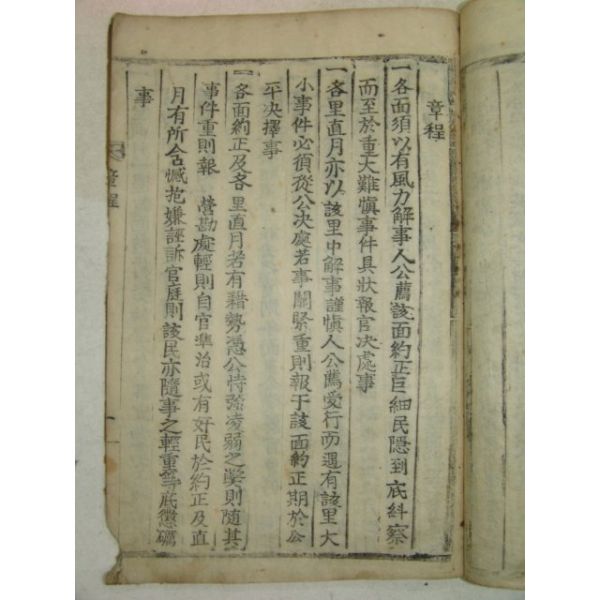 章程
一各面須以有風力解事人公薦該面約正巨細民隱到底糾察
而至於重大難愼事件具狀報官决處事
一各里直月亦以該里中解事謹愼人公薦爰行而遇有該里大
小事件必須從公决處若事關緊重則報于該面約正期於公
平决擇事
一各面約正及各里直月若有藉勢憑公恃强凌弱之獘則隨其
事件重則報 營勘處輕則自官準治或有好民於約正及直
月有所含憾抱嫌誣訴官庭則該民亦隨事之輕重等底懲礪
事
章程